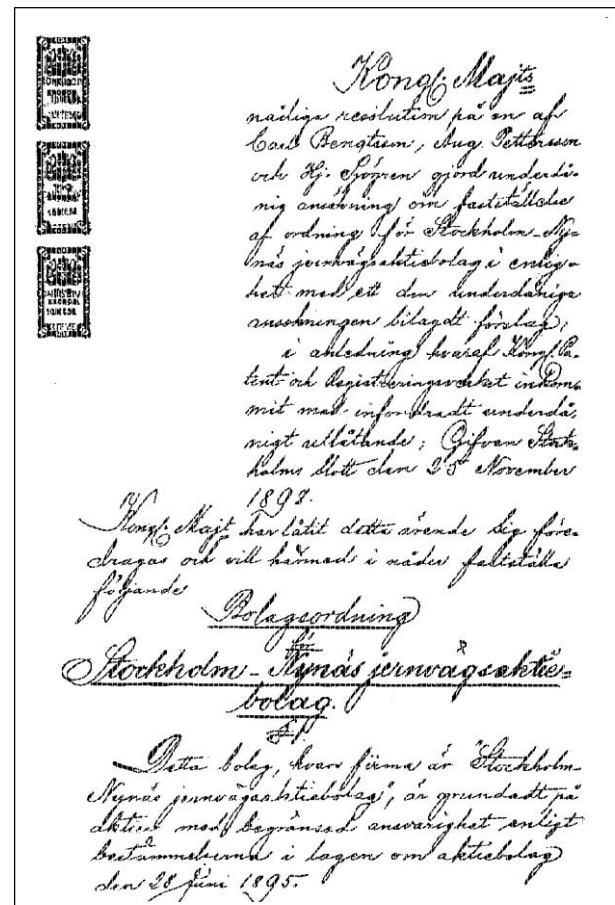 Kongl. Majts
nådiga resolution på en af
Carl Bengtsson, Aug. Pettersson
och Hj. Sjögren gjord underdå-
nig ansökning om fastställelse
af ordning för Stockholm-Ny-
näs jernvägsaktiebolag i enlig-
het med ett den underdåniga
ansökningen bilagdt förslag;
i anledning hvaraf Kongl. Pa-
tent och Registreringsverket inkom-
mit med infordradt underdå-
nigt utlåtande; Gifven Stock-
holms Slott den 25 November
1898.
Kongl. Majt har låtit detta ärende sig före-
dragas och vill härmed i nåder fastställa
följande
Bolagsordning
för
Stockholm-Nynäs jernvägsaktie-
bolag.
§1.
Detta bolag, hvars firma är "Stockholm-
Nynäs jernvägsaktiebolag", är grundadt på
aktier med begränsad ansvarighet enligt
bestämmelserna i lagen om aktiebolag
den 28 Juni 1895.